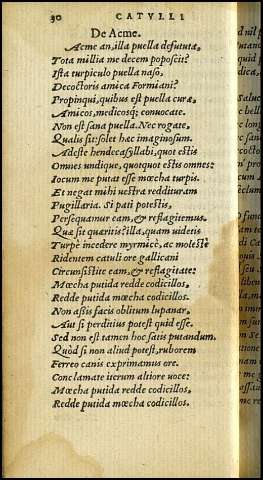 30 CATVLLI
De Acme.
Acme an, illa puella defututa,
Tota millia me decem poposcit?
Ista turpiculo puella naso,
Decoctoris amica Formiani?
Propinqui, quibus est puella curæ,
Amicos, medicosq; conuocate.
Non est sana puella. Nec rogate,
Qualis sit: solet hæc imaginosum.
Adeste hendecasyllabi, quot estis
Omnes undique, quotquot estis omnes:
Iocum me putat esse mœcha turpis.
Et negat mihi uestra reddituram
Pugillaria. Si pati potestis,
Persequamur eam, & reflagitemus.
Quæ sit quæritis? illa, quam uidetis
Turpè incedere myrmicè, ac molestè
Ridentem catuli ore gallicani
Circunsistite eam, & reflagitate:
Mœcha putida redde codicillos.
Redde putida mœcha codicillos.
Non assis facis oblitum lupanar,
Aut si perditius potest quid esse.
Sed non est tamen hoc satis putandum.
Quòd si non aliud potest, ruborem
Ferreo canis exprimamus ore.
Conclamate iterum altiore uoce:
Mœcha putida redde codicillos,
Redde putida mœcha codicillos.